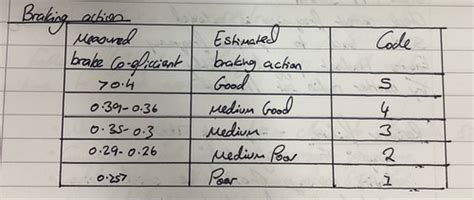 Braking action
Measured brake Co-efficiant | Estimated braking action | Code
>0.4 | Good | 5
0.39-0.36 | Medium Good | 4
0.35-0.3 | Medium | 3
0.29-0.26 | Medium Poor | 2
0.257 | Poor | 1